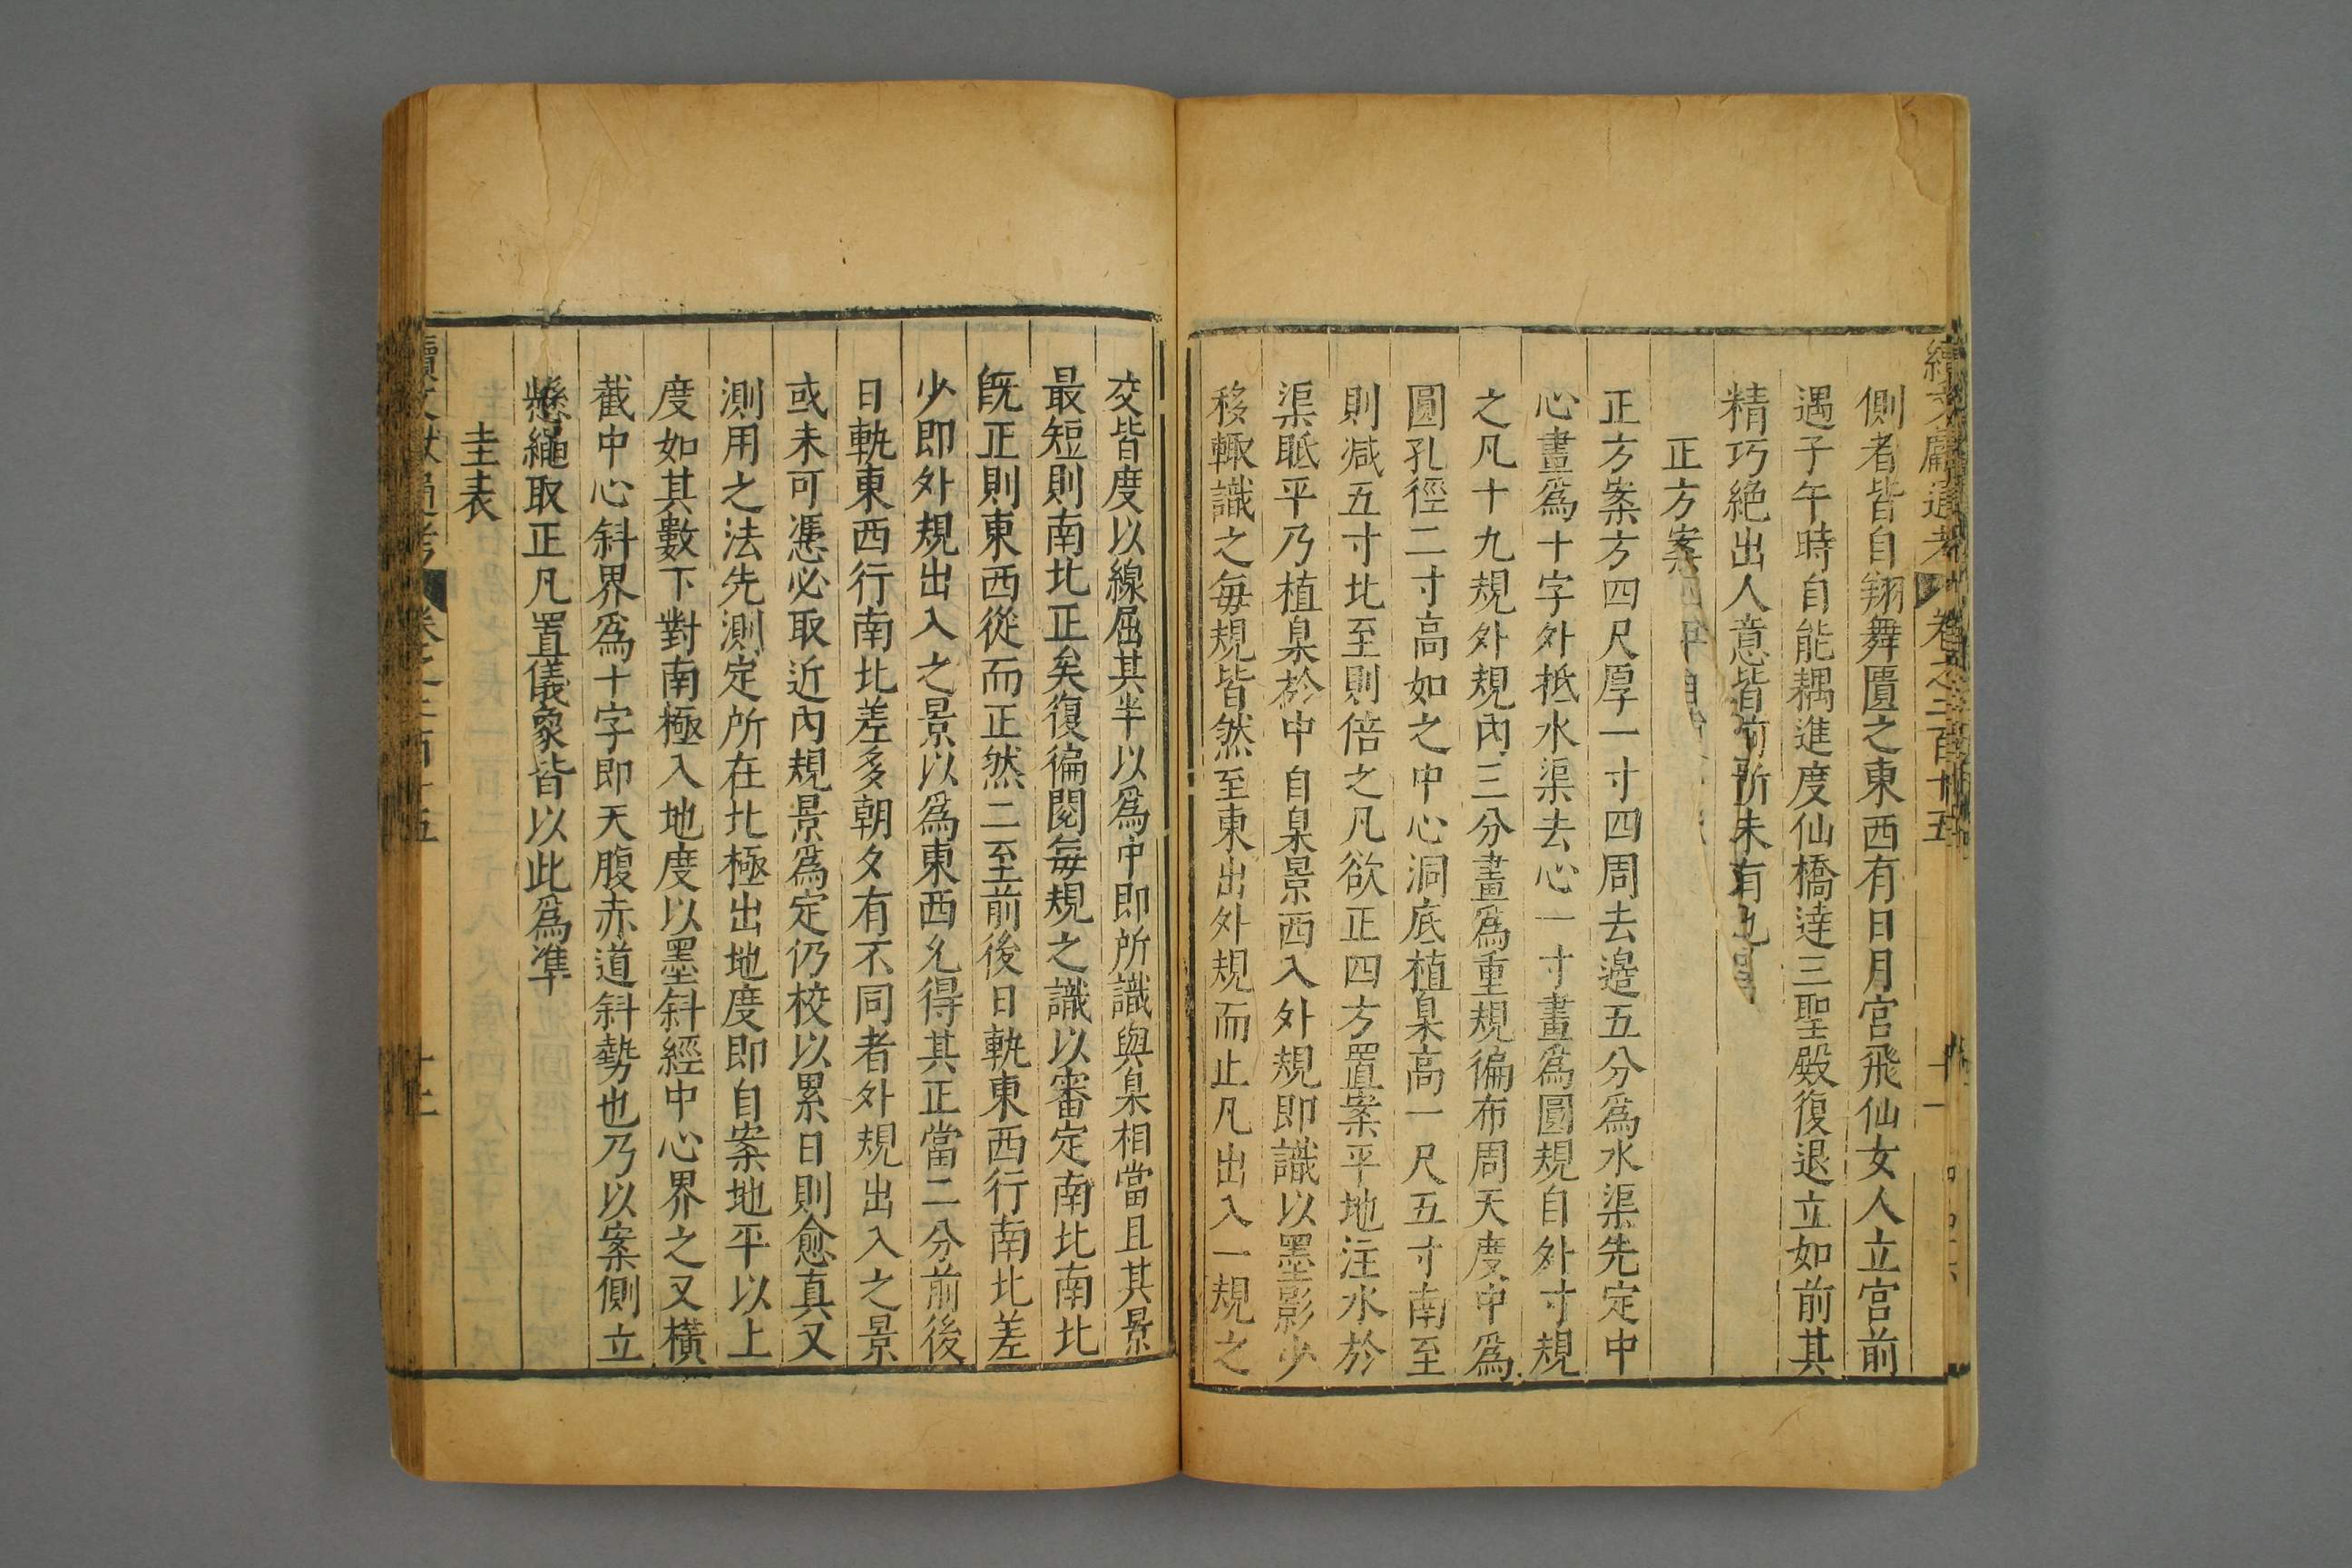 續文獻通考 卷之二百十五 十一
側者皆自翔舞匱之東西有日月宮飛仙女人立宮前
遇子午時自能耦進度仙橋達三聖殿復退立如前其
精巧絶出人意皆前所未有也
正方案
正方案方四尺厚一寸四周去邉五分爲水渠先定中
心畫爲十字外抵水渠去心一寸畫爲圓規自外寸規
之凡十九規外規內三分畫爲重規徧布周天度中爲
圓孔徑二寸高如之中心洞底植臬高一尺五寸南至
則减五寸北至則倍之凡欲正四方置案平地注水於
渠眡平乃植臬於中自臬景西入外規即識以墨影少
移輙識之毎規皆然至東出外規而止凡出入一規之
交皆度以線屈其半以爲中即所識與臬相當且其景
最短則南北正矣復徧閱毎規之識以審定南北南北
旣正則東西從而正然二至前後日軌東西行南北差
少即外規出入之景以爲東西允得其正當二分前後
日軌東西行南北差多朝夕有不同者外規出入之景
或未可憑必取近內規景爲定仍校以累日則愈真又
測用之法先測定所在北極出地度即自案地平以上
度如其數下對南極入地度以墨斜經中心界之又橫
截中心斜界爲十字即天腹赤道斜勢也乃以案側立
懸繩取正凡置儀象皆以此爲準
圭表